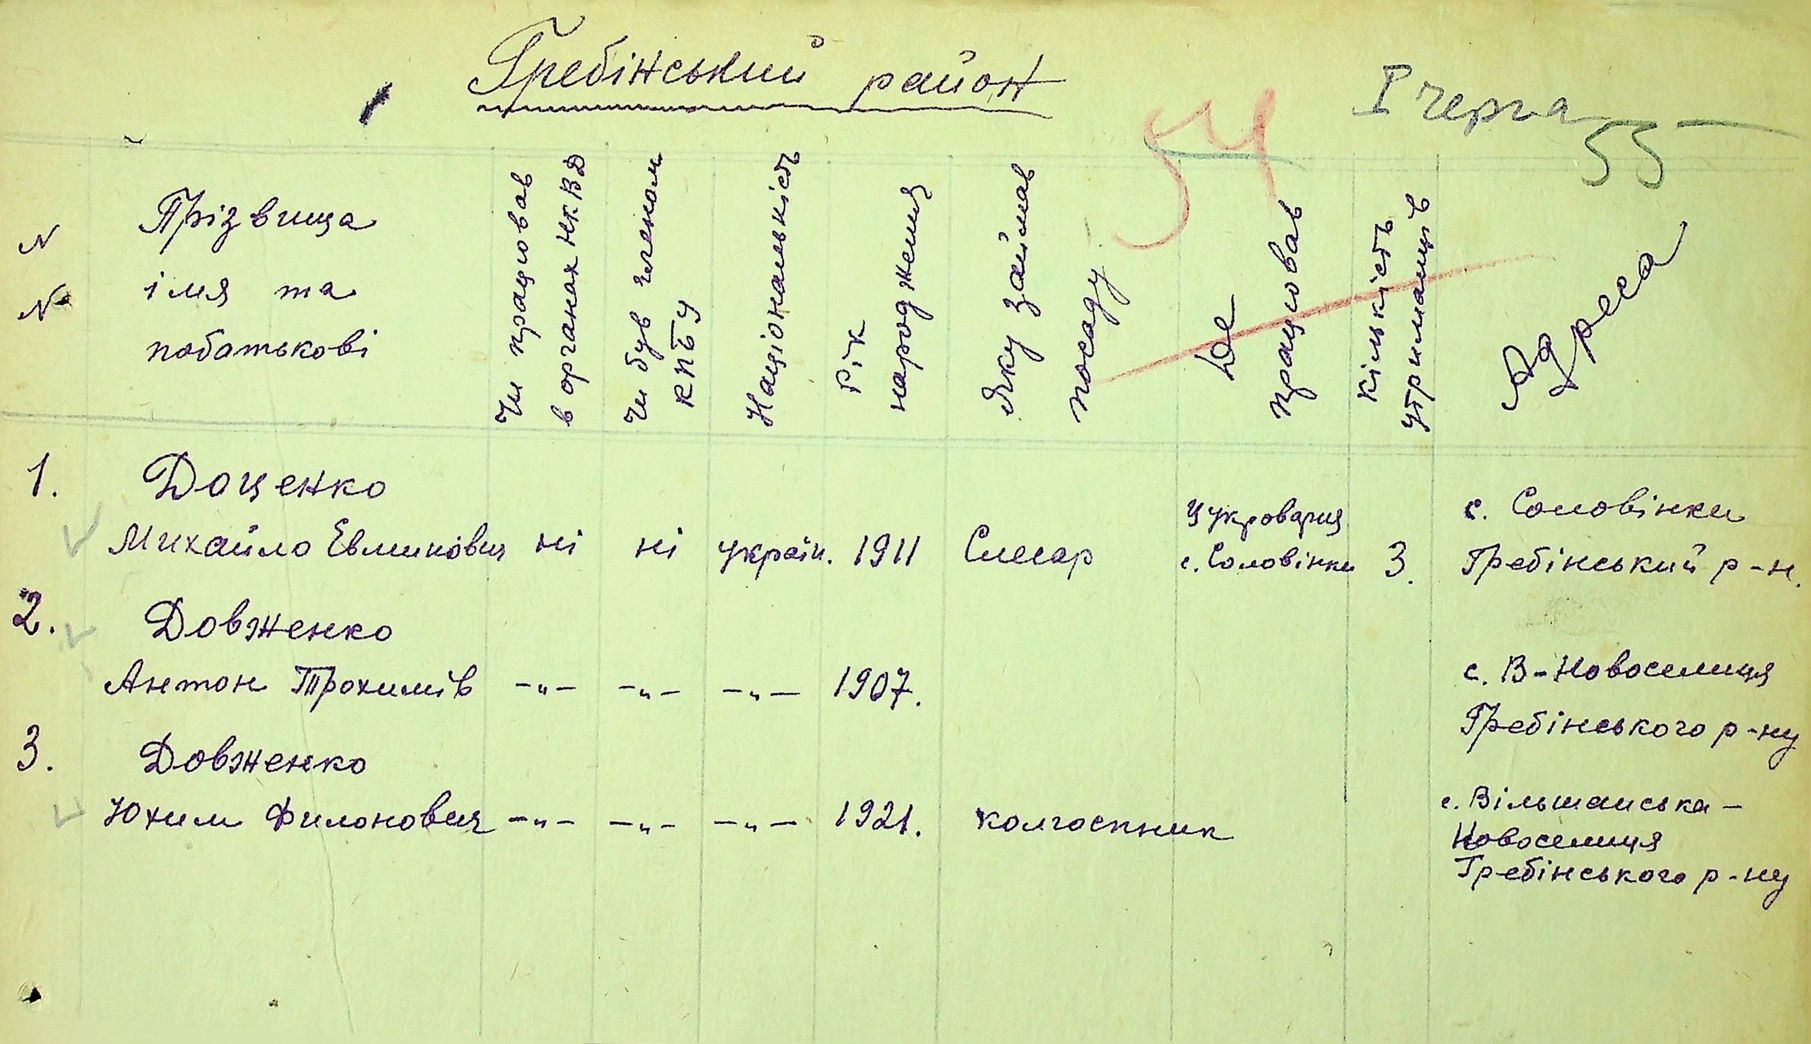 Гребінський район
І черга
54
55
N
N
Прізвища
імя та
побатькові
Чи працював
в органах НКВД
Чи був членом
КПБУ
Національність
Рік
народження
Яку займав
посаду
Де
працював
Кількість
утриманців
Адреса
1. Доценко
Михайло Евминович ні ні україн. 1911 Слюсар Цукроварня с. Соловінки 3. с. Соловінки
Гребінський р-н.
2. Довженко
Антон Трохимів -„- -„- -„- 1907. с. В-Новоселиця
Гребінського р-ну
3. Довженко
Юхим Филонович -„- -„- -„- 1921. колгоспник с. Вільшанська-
Новоселиця
Гребінського р-ну